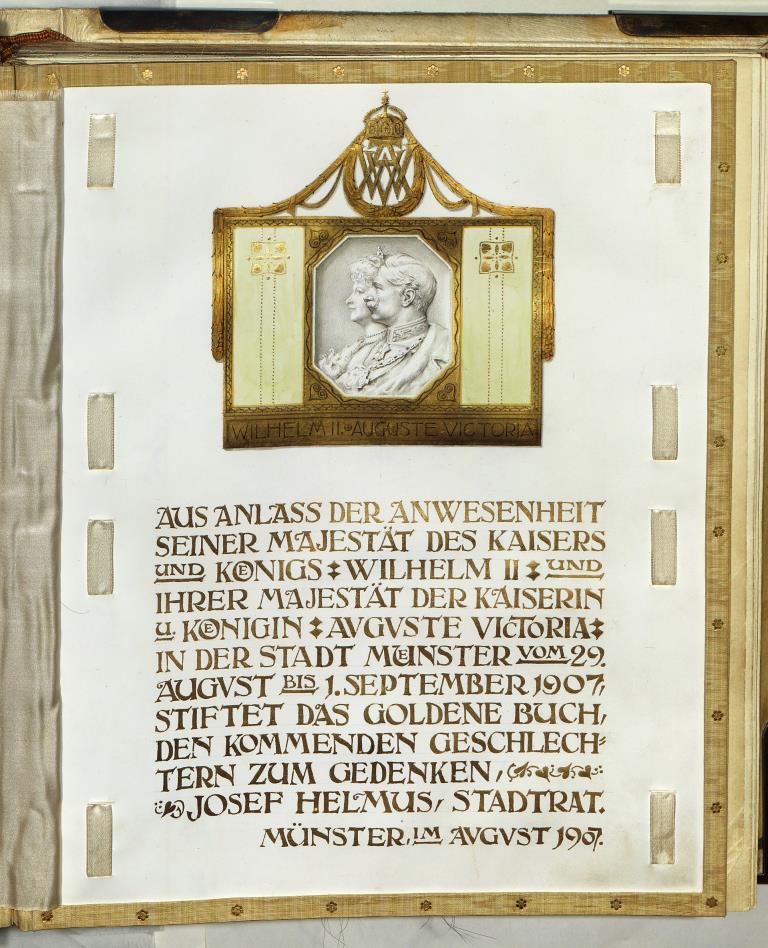 WILHELM II. AUGUSTE VICTORIA
AUS ANLASS DER ANWESENHEIT
SEINER MAJESTÄT DES KAISERS
UND KŒNIGS WILHELM II UND
IHRER MAJESTÄT DER KAISERIN
U. KŒNIGIN AVGVSTE VICTORIA
IN DER STADT MUENSTER VOM 29.
AUGVST BIS 1. SEPTEMBER 1907,
STIFTET DAS GOLDENE BUCH,
DEN KOMMENDEN GESCHLECH=
TERN ZUM GEDENKEN,
JOSEF HELMUS, STADTRAT.
MÜNSTER, IM AVGVST 1907.